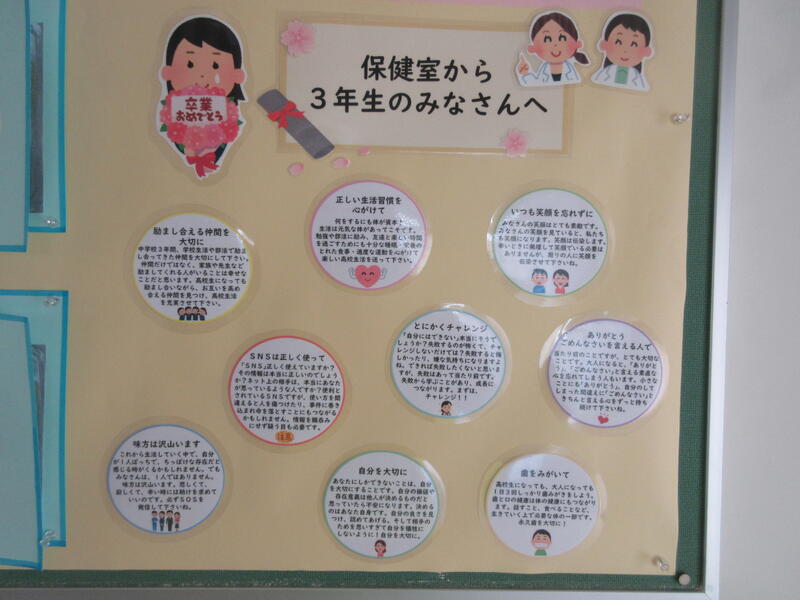 卒業
おめでとう
保健室から
３年生のみなさんへ
正しい生活習慣を
心がけて
何をするにも体が資本！
生活は元気な体があってこそです。
勉強や部活に励み、友達と楽しい時間
を過ごすためにも十分な睡眠・栄養の
とれた食事・適度な運動を心がけて
楽しい高校生活を送って下さい。
いつも笑顔を忘れずに
みなさんの笑顔はとても素敵です。
みなさんの笑顔を見ていると、私たち
も笑顔になります。笑顔は伝染します。
辛いときに無理して笑顔でいる必要は
ありませんが、周りの人に笑顔を
伝染させて下さいね。
励まし合える仲間を
大切に
中学校３年間、学校生活や部活で励ま
し合ってきた仲間を大切にして下さい。
仲間だけではなく、家族や先生など
励ましてくれる人がいることは幸せな
ことだと思います。高校生になっても
励まし合いながら、お互いを高め
合える仲間を見つけ、高校生活
を充実させて下さい。
とにかくチャレンジ
「自分にはできない」本当にそうで
しょうか？失敗するのが怖くて、チャ
レンジしないだけでは？失敗すると悔
しかったり、嫌な気持ちになりますよ
ね。できれば失敗したくないと思いま
すが、失敗はあって当たり前です。
失敗から学ぶことがあり、成長に
つながります。まずは、
チャレンジ！！
ありがとう
ごめんなさいを言える人で
当たり前のことですが、とても大切な
ことです。大人になると、「ありがと
う」、「ごめんなさい」と言える素直な
心を忘れてしまう人もいます。小さな
ことにも「ありがとう」。自分のして
しまった間違えに「ごめんなさい」と
きちんと言える心をずっと持ち
続けて下さいね。
ＳＮＳは正しく使って
「ＳＮＳ」正しく使えていますか？
その情報は本当に正しいのでしょう
か？ネット上の相手は、本当にあなた
が思っているような人ですか？便利と
されているＳＮＳですが、使い方を間
違えると人を傷つけたり、事件に巻き
込まれ命を落とすことにもつながる
かもしれません。情報を鵜呑み
にせず疑う目も必要です。
注意
味方は沢山います
これから生活していく中で、自分
が１人ぼっちで、ちっぽけな存在だと
感じる時がくるかもしれません。でも
みなさんは、１人ではありません。
味方は沢山います。悲しくて、
寂しくて、辛い時には助けを求めて
いいのです。必ずＳＯＳを
発信して下さいね。
自分を大切に
あなたにしかできないことは、自分
を大切にすることです。自分の価値や
存在意義は他人が決めるものだと
思っていたら不安になります。決める
のはあなた自身です。自分の良さを見
つけ、認めてあげる。そして相手の
ためを思いすぎて自分を犠牲に
しないように！自分を大切に。
歯をみがいて
高校生になっても、大人になっても
１日３回しっかり歯みがきをしよう。
歯と口の健康は体の健康にもつながり
ます。話すこと、食べることなど、
生きていく上で必要な体の一部です。
永久歯を大切に！